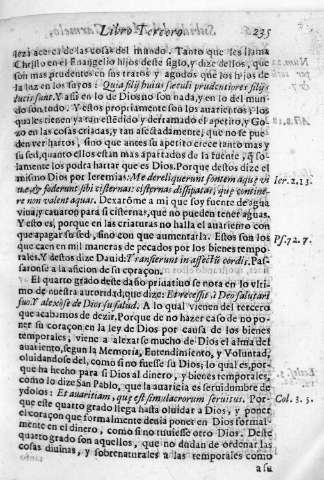 Libro Tercero. 235
dezi acerca de las cosas del mundo. Tanto que les llama
Christo en el Euangelio hijos deste siglo, y dize dellos, que
son mas prudentes en sus tratos y agudos que los hijos de
la luz en los suyos: Quia filij huius sæculi prudentiores filijs
lucis sunt. Y assi en lo de Dios no son nada, y en lo del mun-
do son todo. Y estos propriamente son los auarientos, los
quales tienen ya tan estēdido y derramado el apetito, y Go-
zo en las cosas criadas, y tan afectadamente, que no se pue-
den ver hartos, sino que antes su apetito crece tanto mas y
su sed, quanto ellos estan mas apartados de la fuente, q̃ so-
lamente los podia hartar que es Dios. Porque destos dize el
mismo Dios por Ieremias: Me dereliquerunt fontem aquę vi
uæ, & foderunt sibi cisternas: cisternas dissipatas, que contine-
re non valent aquas. Dexarōme a mi que soy fuente de agua
viua, y cauarō para si cisternas, que no pueden tener aguas.
Y esto es, porque en las criaturas no halla el auariento con
que apagar su sed, sino con que aumentarla. Estos son los
que caen en mil maneras de pecados por los bienes tempo-
rales. Y destos dize Dauid: Transierunt in affectū cordis. Pas-
saronse a la aficion de su coraçon.
El quarto grado deste daño priuatiuo se nota en lo vlti-
mo de nuestra autoridad, que dize: Et recessit à Deo salutari
suo. Y alexóse de Dios su salud. A lo qual vienen del tercero
que acabamos de dezir. Porque de no hazer caso de no po-
ner su coraçon en la ley de Dios por causa de los bienes
temporales, viene a alexarse mucho de Dios el alma del
auariento, segun la Memoria, Entendimiento, y Voluntad,
oluidandose del, como si no fuesse su Dios; lo qual es, por-
que ha hecho para si Dios al dinero, y bienes temporales,
como lo dize San Pablo, que la auaricia es seruidumbre de
ydolos: Et auaritiam, que est simulacrorum seruitus. Por-
que este quarto grado llega hasta oluidar a Dios, y poner
el coraçon que formalmente deuia poner en Dios formal-
mente en el dinero, como si no tuuiesse otro Dios. Deste
quarto grado son aquellos, que no dudan de ordenar las
cosas diuinas, y sobrenaturales a las temporales como
a su
Ier. 2. 13.
Ps. 72. 7.
Col. 3. 5.